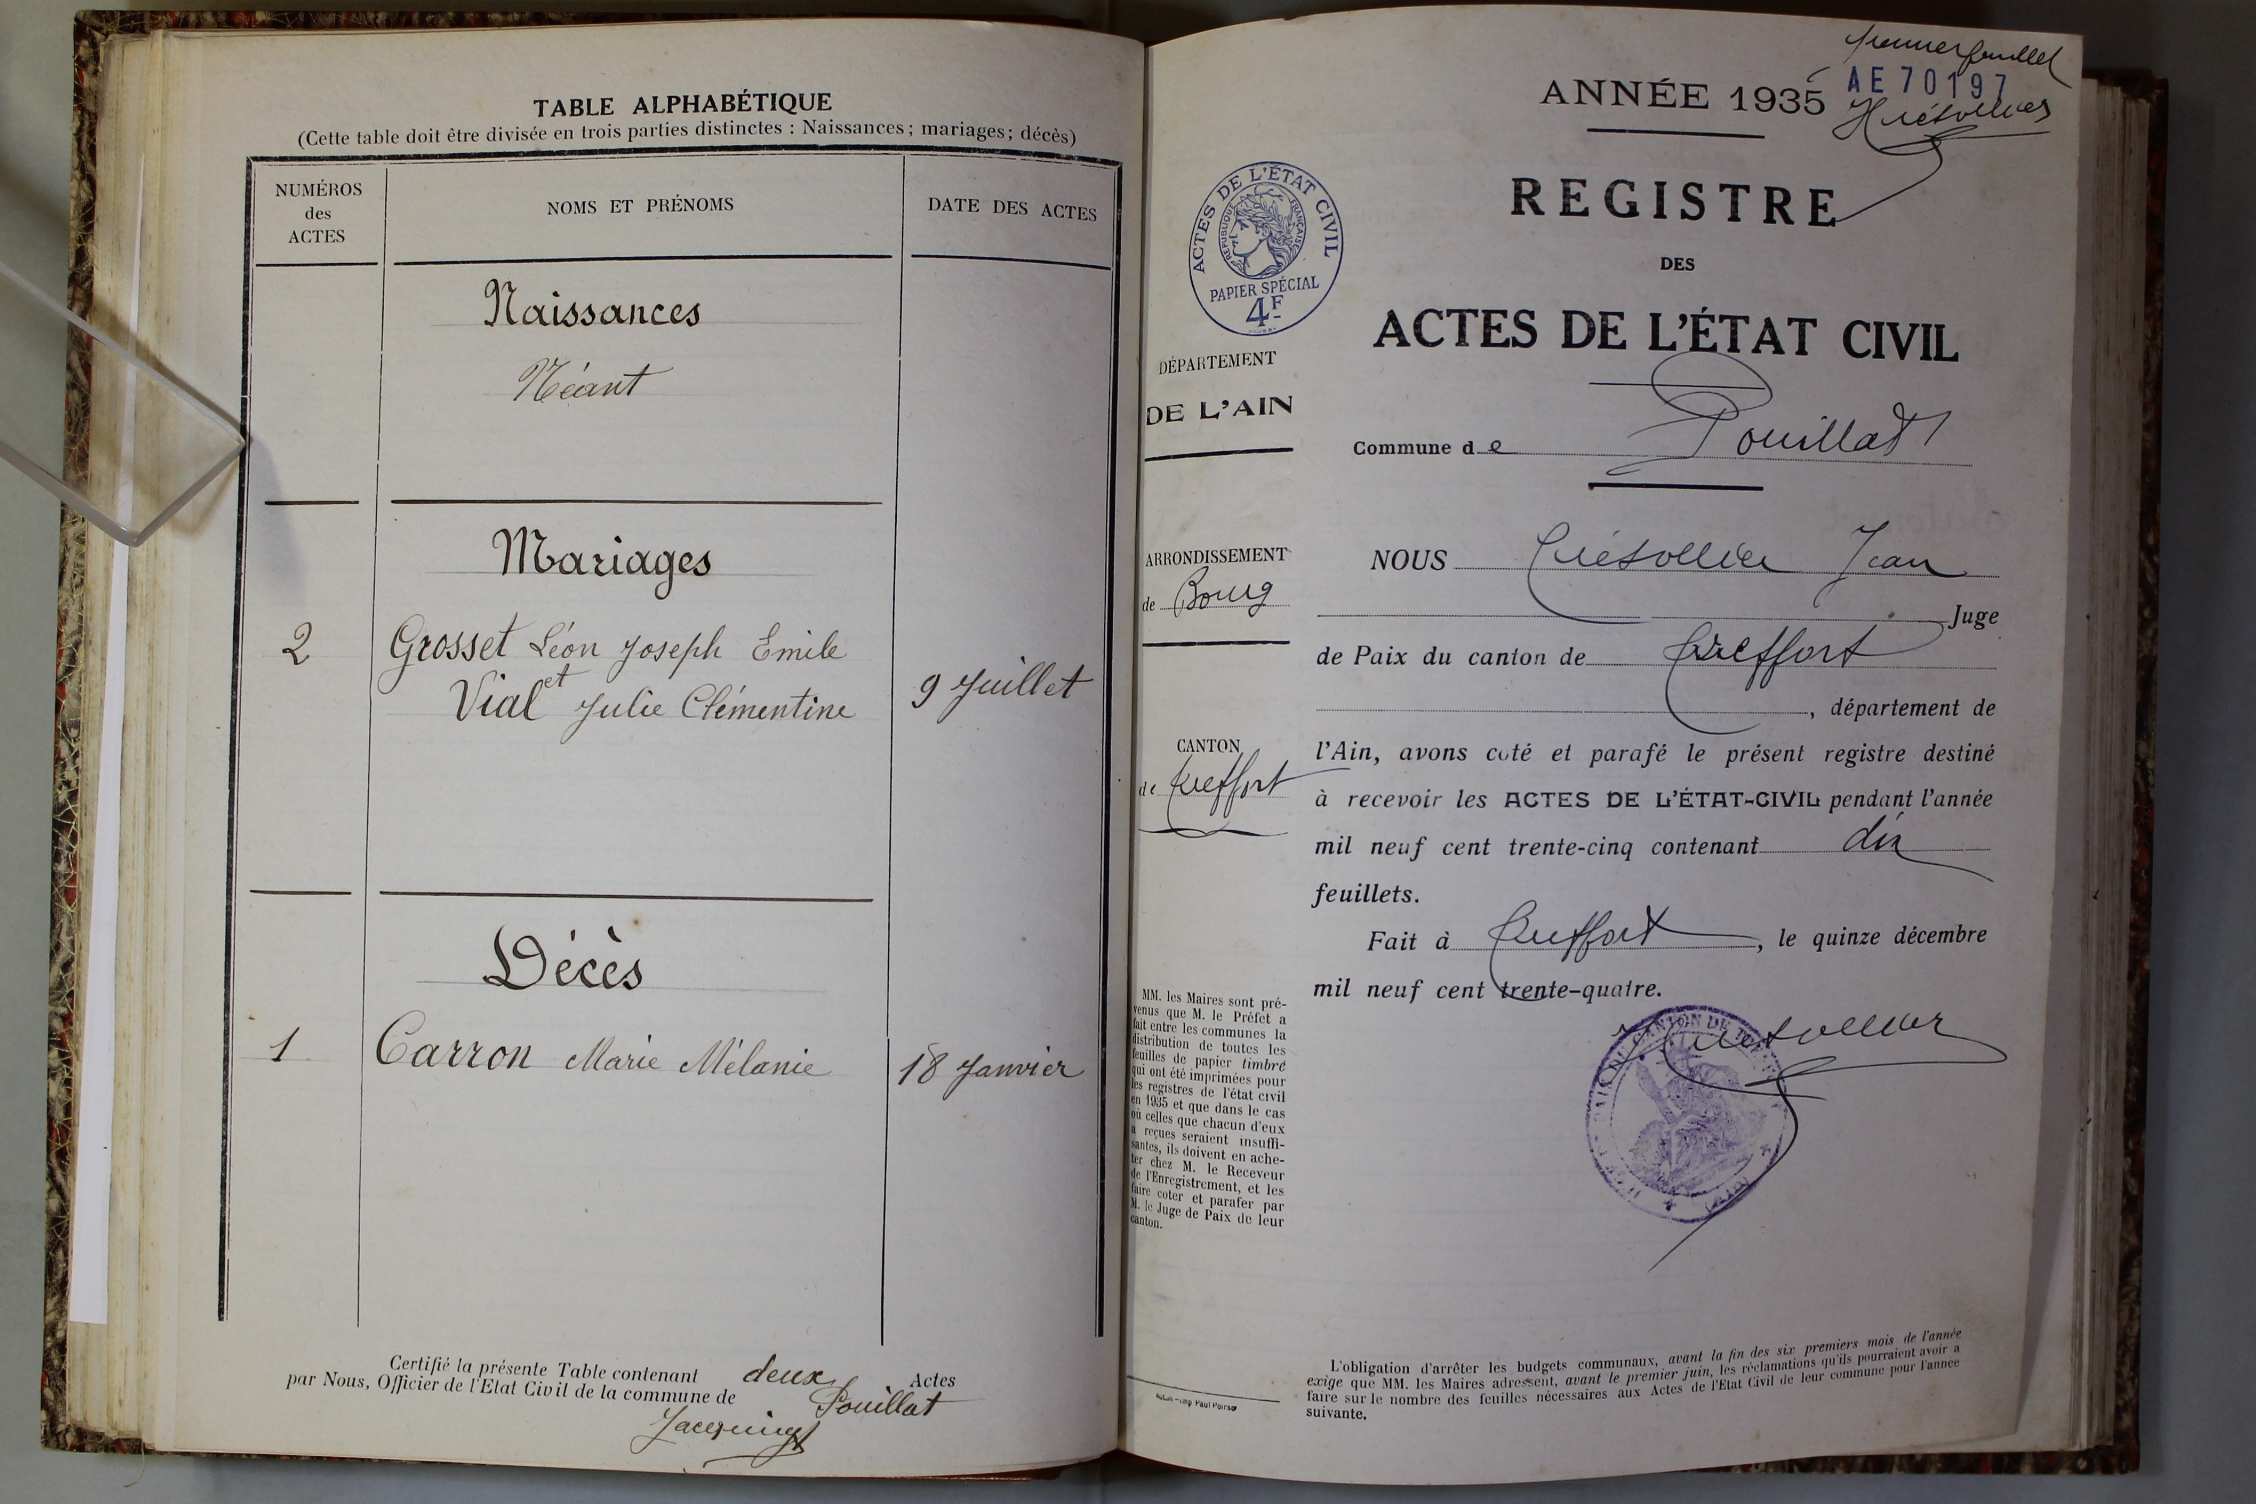 TABLE ALPHABÉTIQUE
(Cette table doit être divisée en trois parties distinctes : Naissances ; mariages ; décès)
NUMÉROS
des
ACTES
NOMS ET PRÉNOMS
DATE DES ACTES
Naissances
Néant
Mariages
2 Grosset Léon Joseph Emile
et
Vial Julie Clémentine 9 Juillet
Décès
1 Carron Marie Mélanie 18 Janvier
Certifié la présente Table contenant deux Actes
par Nous, Officier de l'Etat Civil de la commune de Pouillat
premier feuillet
ANNÉE 1935
AE 70197
REGISTRE
DES
ACTES DE L'ÉTAT CIVIL
ACTES DE L'ÉTAT CIVIL
RÉPUBLIQUE FRANÇAISE
PAPIER SPÉCIAL
4F
DÉPARTEMENT
DE L'AIN
Commune de Pouillat
ARRONDISSEMENT
de Bourg
CANTON
de Treffort
NOUS Jean
Juge
de Paix du canton de Treffort
, département de
l'Ain, avons coté et parafé le présent registre destiné
à recevoir les ACTES DE L'ÉTAT-CIVIL pendant l'année
mil neuf cent trente-cinq contenant dix
feuillets.
Fait à Treffort, le quinze décembre
mil neuf cent trente-quatre.
MM. les Maires sont pré-
venus que M. le Préfet a
fait entre les communes la
distribution de toutes les
feuilles de papier timbré
qui ont été imprimées pour
les registres de l'état civil
en 1935 et que dans le cas
où celles que chacun d'eux
a reçues seraient insuffi-
santes, ils doivent en ache-
ter chez M. le Receveur
de l'Enregistrement, et les
faire coter et parafer par
M. le Juge de Paix de leur
canton.
L'obligation d'arrêter les budgets communaux, avant la fin des six premiers mois de l'année
exige que MM. les Maires adressent, avant le premier juin, les réclamations qu'ils pourraient avoir à
faire sur le nombre des feuilles nécessaires aux Actes de l'Etat Civil de leur commune pour l'année
suivante.